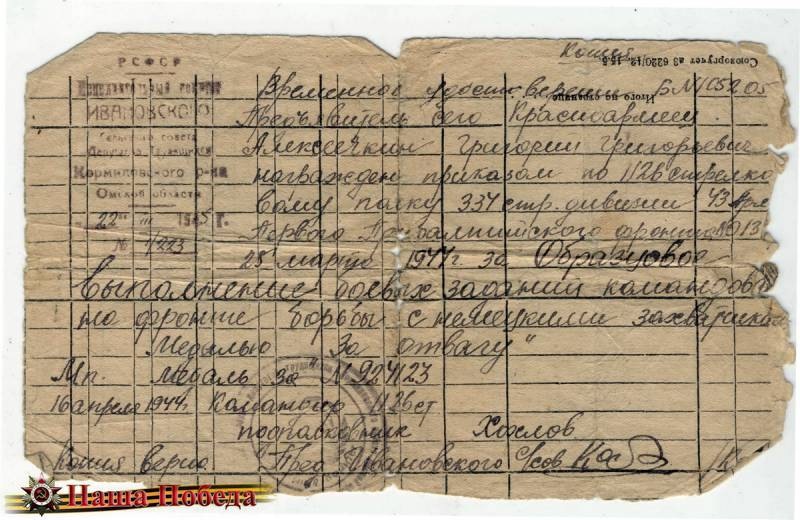 Копия
Союзоргучет аз 6220/12, 15-6
Итого по странице
РСФСР
Исполнительный комитет
ИВАНОВСКОГО
Сельского совета
Депутатов Трудящихся
Кормиловского р-на
Омской области
22 III 1945 г.
№ 1/223
Временное удостоверен Б №
Предъявитель сего Красноармеец
Алексечкин Григорий Григорьевич
награжден приказом по 1126 стрелко
вому полку 334 стр. дивизии 43 Арм
Первого Прибалтийского фронта №013
25 марта 1944 г за Образцовое
выполнение боевых заданий командов
на фронте борьбы с немецкими захватчика
Медалью За отвагу"
Мп. медаль за № 924123
16 апреля 1944 г Командир 1126 ст
подпасковник Хохлов
Копия верна Пред Ивановского с/сов
Наша Победа